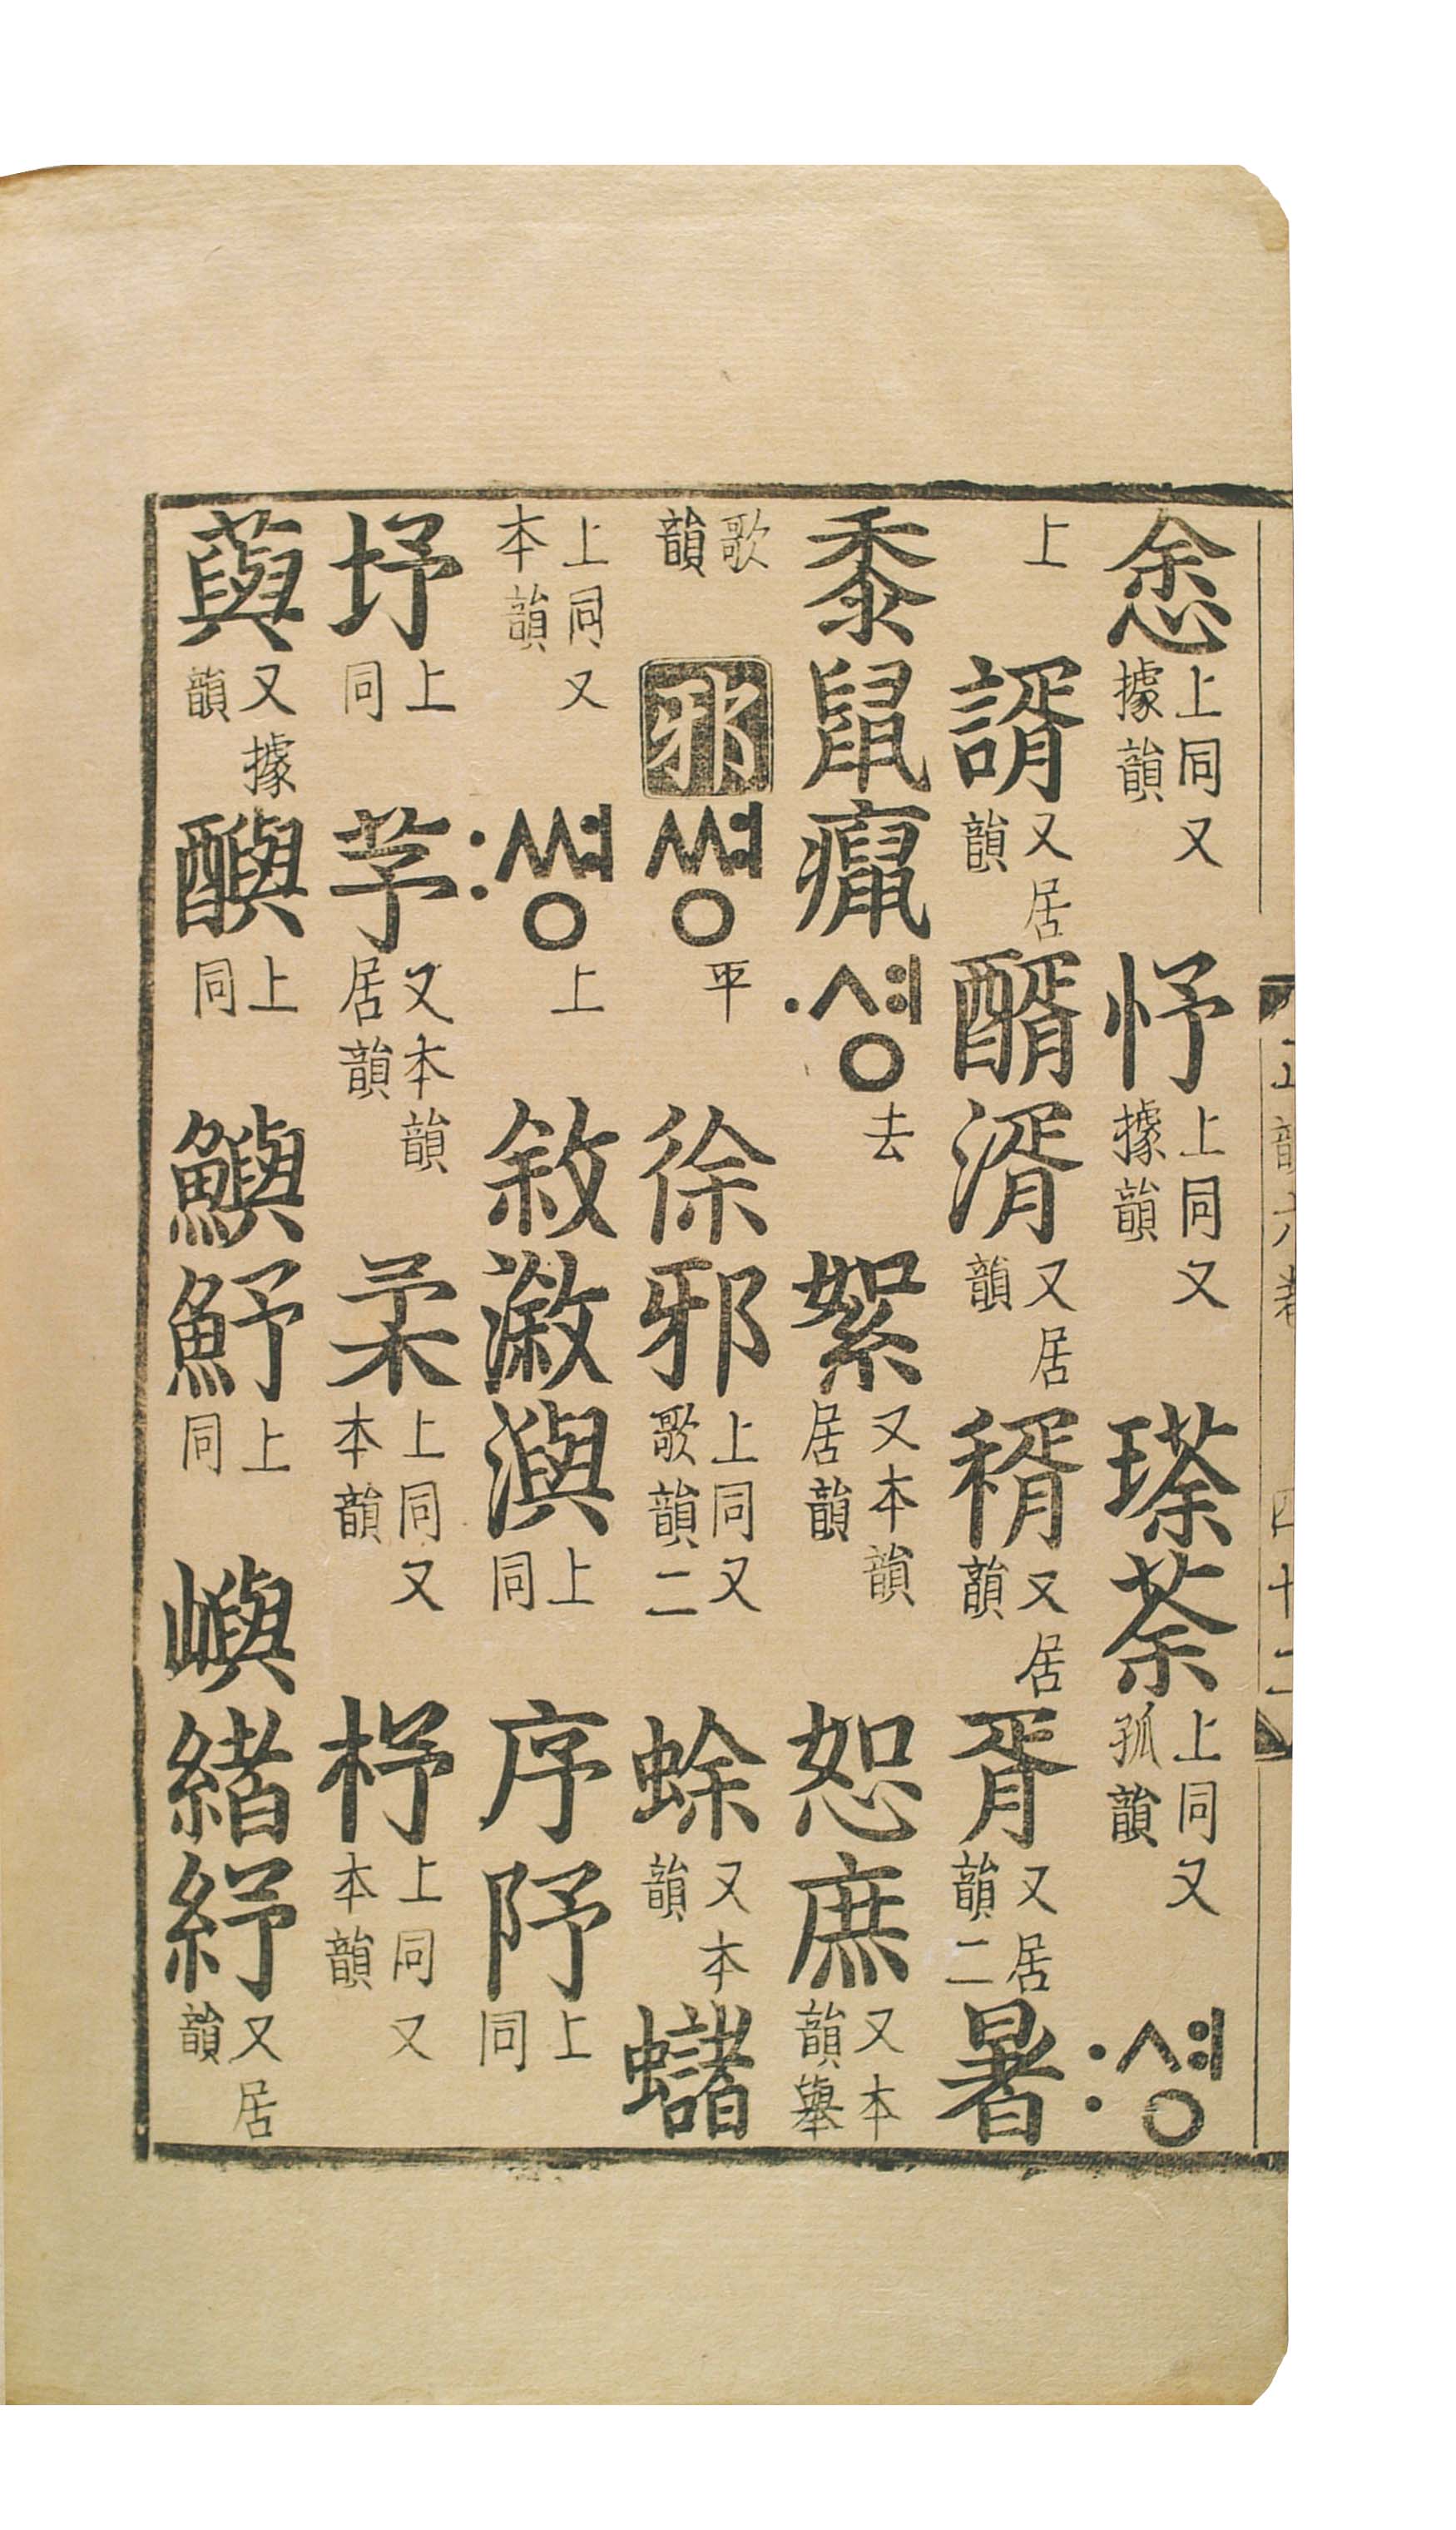 悆上同又據韻忬上同又據韻瑹荼上同又孤韻:셩
上諝又居韻醑湑又居韻稰又居韻胥又居韻二暑
黍鼠癙·셩去絮又本韻居韻恕庶又本韻舉
歌韻邪쎵平徐邪上同又歌韻二蜍又本韻蠩
上同又本韻:쎵上敘漵㵰上同序上同
上同芧又本韻居韻柔上同又本韻杼上同又本韻
藇又據韻上同鱮魣上同嶼緒紓又居韻
正韻六卷 四十二